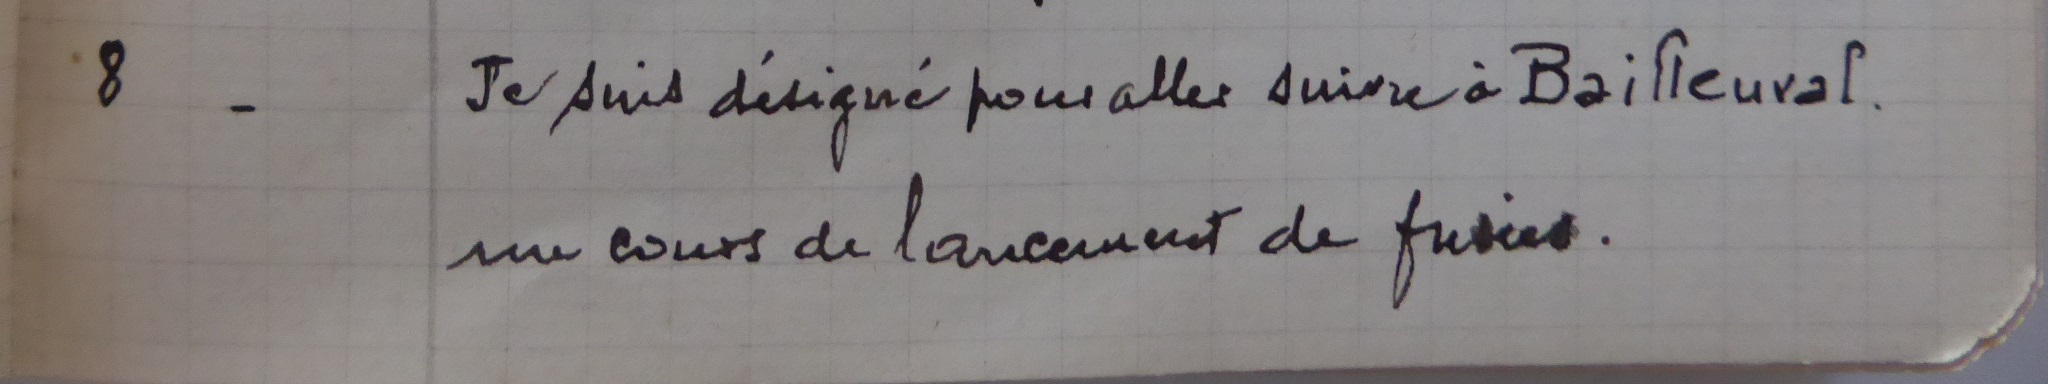 8 - Je suis désigné pour aller suivre à Bailleuval.
un cours de lancement de fusées.